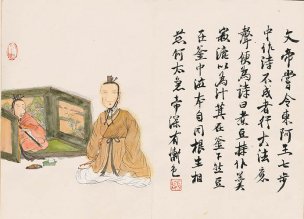 文帝嘗令東阿王七步
中作詩不成者行大法應
聲便為詩曰煮豆持作羹
漉以為汁萁在釜下然豆
在釜中泣本自同根生相
煎何太急帝深有慚色